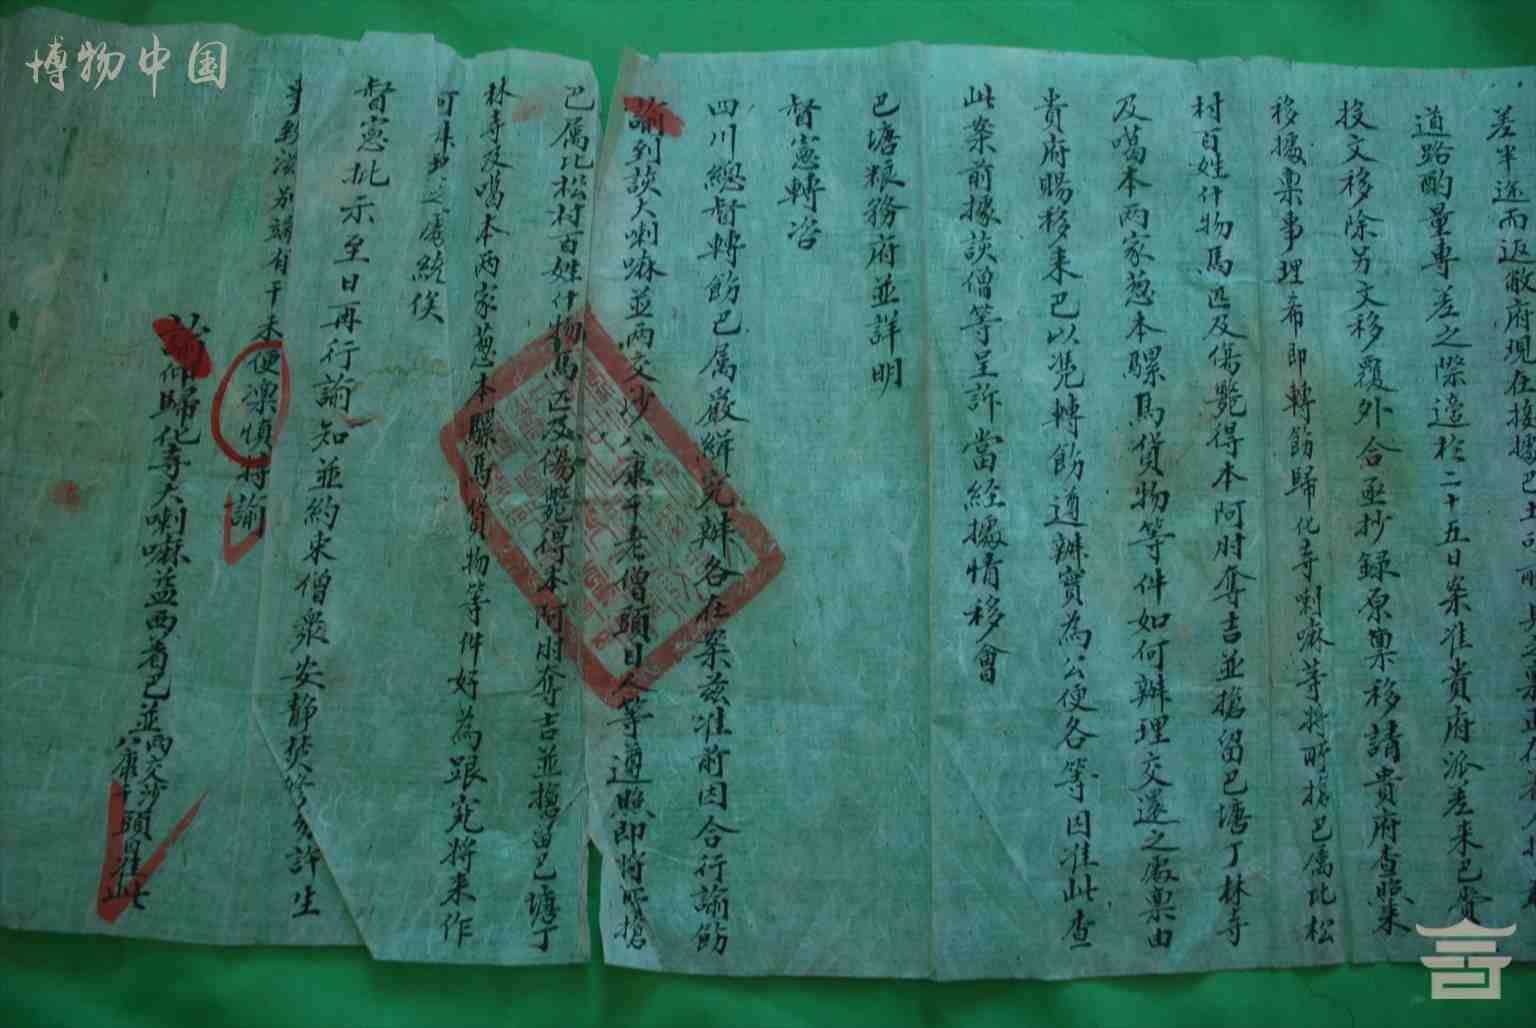 博物中国
差半途而返敝府現在接據巴土司
道路酌量專差之際適於二十五日案准貴府派差来巴賫
投文移除另文移覆外合亟抄録原禀移請貴府查照来
移據禀事理希即轉飭歸化寺喇嘛等將所搶巴属比松
村百姓什物馬匹及傷斃得本阿肘奪吉並搶留巴塘丁林寺
及噶本两家葱本騾馬貨物等件如何辦理交還之處禀由
貴府賜移来巴以凭轉飭遵辦實為公便各等因准此查
此案前據談僧等呈訴當経據情移會
巴塘粮務府並詳明
督憲轉咨
四川總督轉飭巴属嚴緝究辦各在案兹准前因合行諭飭
諭到該大喇嘛並两交沙八康千老僧頭目人等遵照即將所搶
巴属比松村百姓什物馬匹及傷斃得本阿肘奪吉並搶留巴塘丁
林寺及噶本两家葱本騾馬貨物等件好為跟究将来作
可辦理之處統俟
督憲批示至日再行諭知並約束僧衆安静焚修勿許生
事致滋別端有干未便凛慎特諭
諭仰歸化寺大喇嘛益西着巴並两交沙八康千頭目准此